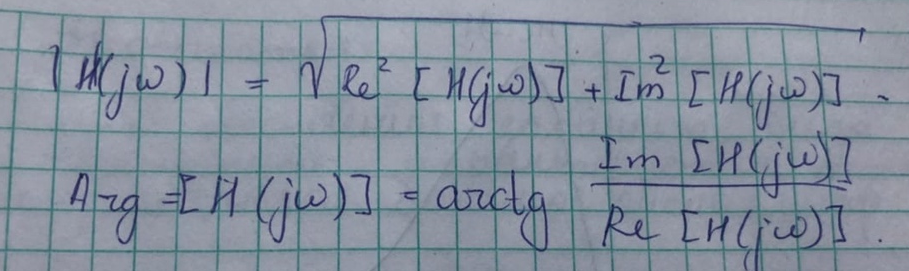 |H(jω)| = √(Re² [H(jω)] + Im² [H(jω)]) .
Arg =[H(jω)] = arctg Im [H(jω)] / Re [H(jω)] .